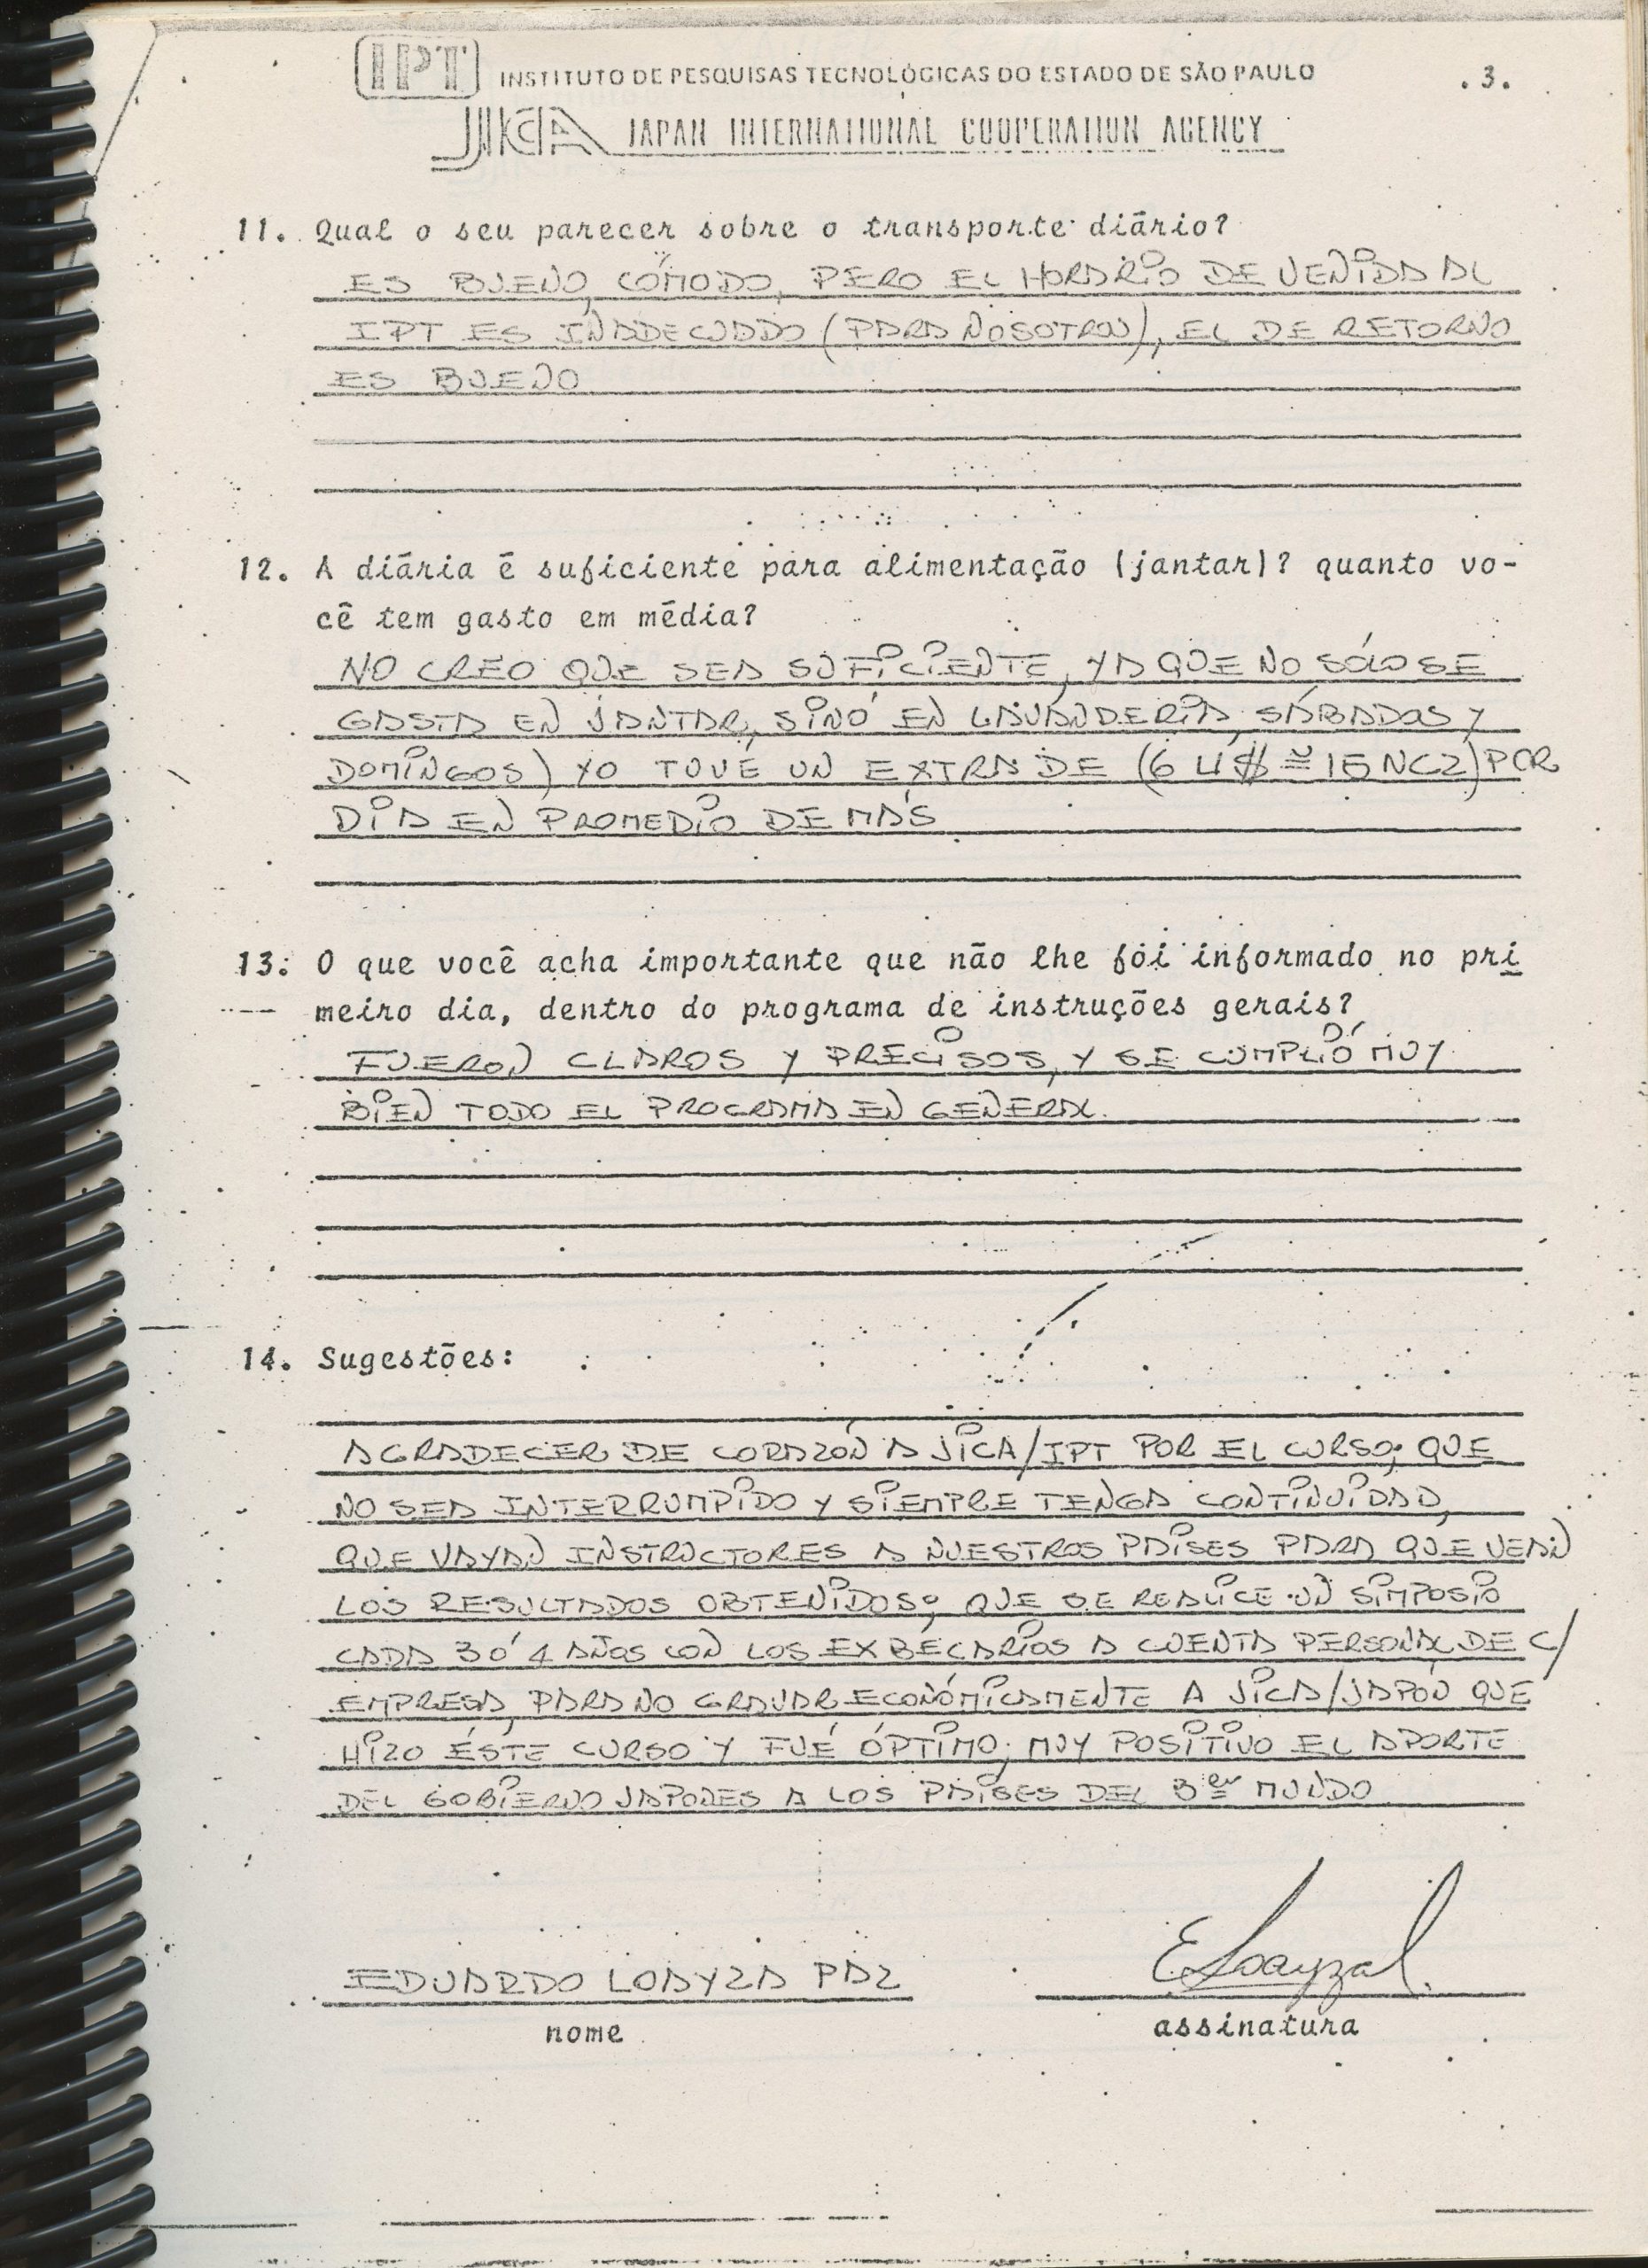 IPT INSTITUTO DE PESQUISAS TECNOLÓGICAS DO ESTADO DE SÃO PAULO .3.
JICA JAPAN INTERNATIONAL COOPERATION AGENCY
11. Qual o seu parecer sobre o transporte diário?
ES BUENO, CÓMODO, PERO EL HORARIO DE VENIDA AL
IPT ES INADECUADO (PARA NOSOTROS), EL DE RETORNO
ES BUENO
12. A diária é suficiente para alimentação (jantar)? quanto vo-
cê tem gasto em média?
NO CREO QUE SEA SUFICIENTE, YA QUE NO SÓLO SE
GASTA EN JANTAR, SINÓ EN LAVANDERIA, SÁBADOS Y
DOMINGOS) YO TUVE UN EXTRA DE (6 U$ ≅ 15 NCZ) POR
DIA EN PROMEDIO DE MÁS
13. O que você acha importante que não lhe foi informado no pri
meiro dia, dentro do programa de instruções gerais?
FUERON CLAROS Y PRECISOS, Y SE CUMPLIÓ MUY
BIEN TODO EL PROGRAMA EN GENERAL.
14. Sugestões:
AGRADECER DE CORAZÓN A JICA/IPT POR EL CURSO; QUE
NO SEA INTERRUMPIDO Y SIEMPRE TENGA CONTINUIDAD,
QUE VAYAN INSTRUCTORES A NUESTROS PAISES PARA QUE VEAN
LOS RESULTADOS OBTENIDOS; QUE SE REALICE UN SIMPOSIO
CADA 3 Ó 4 AÑOS CON LOS EXBECARIOS A CUENTA PERSONAL DE C/
EMPRESA, PARA NO GRAVAR ECONÓMICAMENTE A JICA/JAPÓN QUE
HIZO ÉSTE CURSO Y FUÉ ÓPTIMO; MUY POSITIVO EL APORTE
DEL GOBIERNO JAPONES A LOS PAISES DEL 3er MUNDO
EDUARDO LOAYZA PAZ ELoayzaP.
nome assinatura